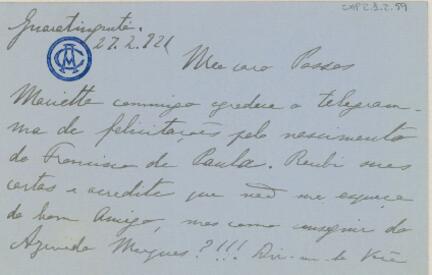 CMP 2.1.2.59
Guaratinguetá.
27.2.921
Meu caro Passos
Mariette commigo agradece o telegram-
ma de felicitações pelo nascimento
do Francisco de Paula. Recebi suas
cartas e acredite que não me esqueço
do bom amigo, mas como conseguir do
Azevedo Marques?!!! Diz-me